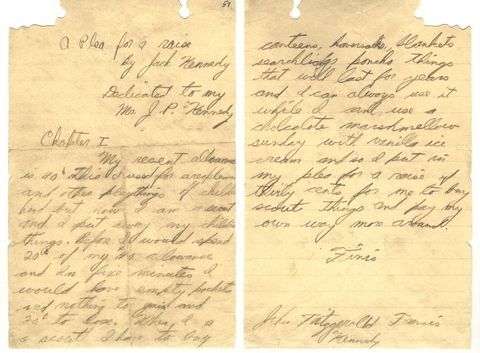 51
A Plea for a raise
by Jack Kennedy
Dedicated to my
Mr. J. P. Kennedy
Chapter I
My recent allowance
is 40¢. This I used for areoplanes
and other playthings of childhood
but now I am a scout
and I put away my childish
things. Before I would spend
20¢ of my ¢40 allowance
and in five minutes I
would have empty pockets
and nothing to gain and
20¢ to lose. When I a
a scout I have to buy
canteens, haversacks, blankets
searchlidgs poncho things
that will last for years
and I can always use it
while I cant use a
chocolate marshmellow
sunday with vanilla ice
cream and so I put in
my plea for a raise of
thirty cents for me to buy
scout things and pay my
own way more around.
Finis
John Fitzgerald Francis
Kennedy